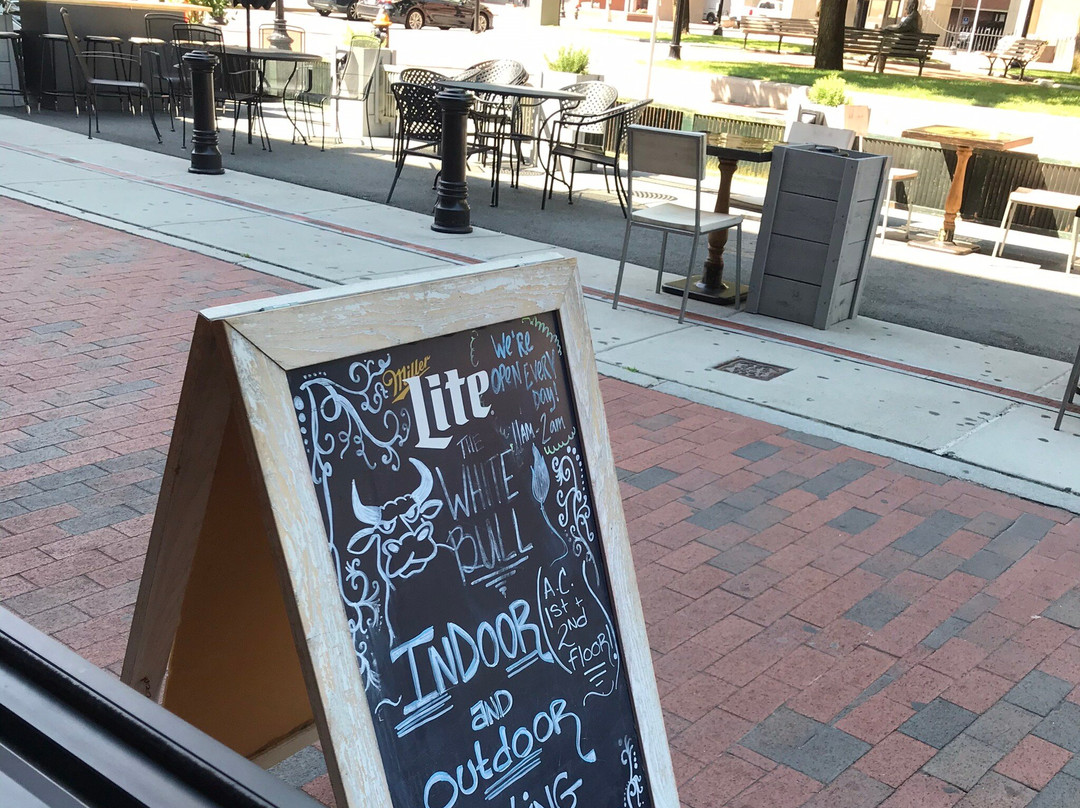 Miller
Lite
We're
OPEN EVERY
Day!
11am-2am
THE
WHITE
BULL
A.C.
1st +
2nd
Floor
INDOOR
AND
Outdoor